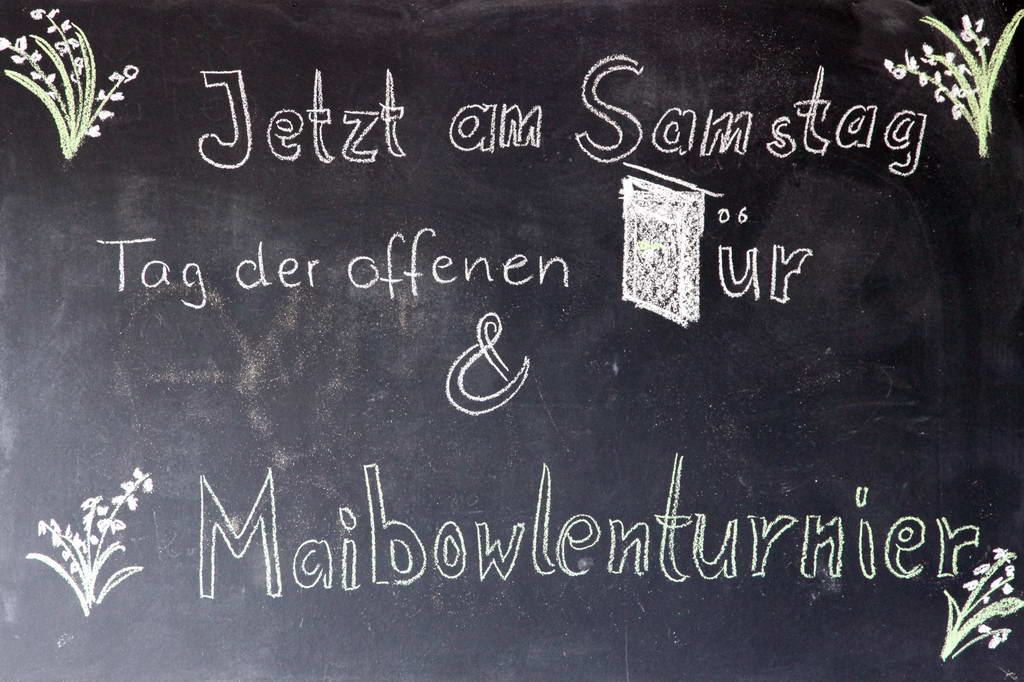 Jetzt am Samstag
Tag der offenen Tür
&
Maibowlenturnier